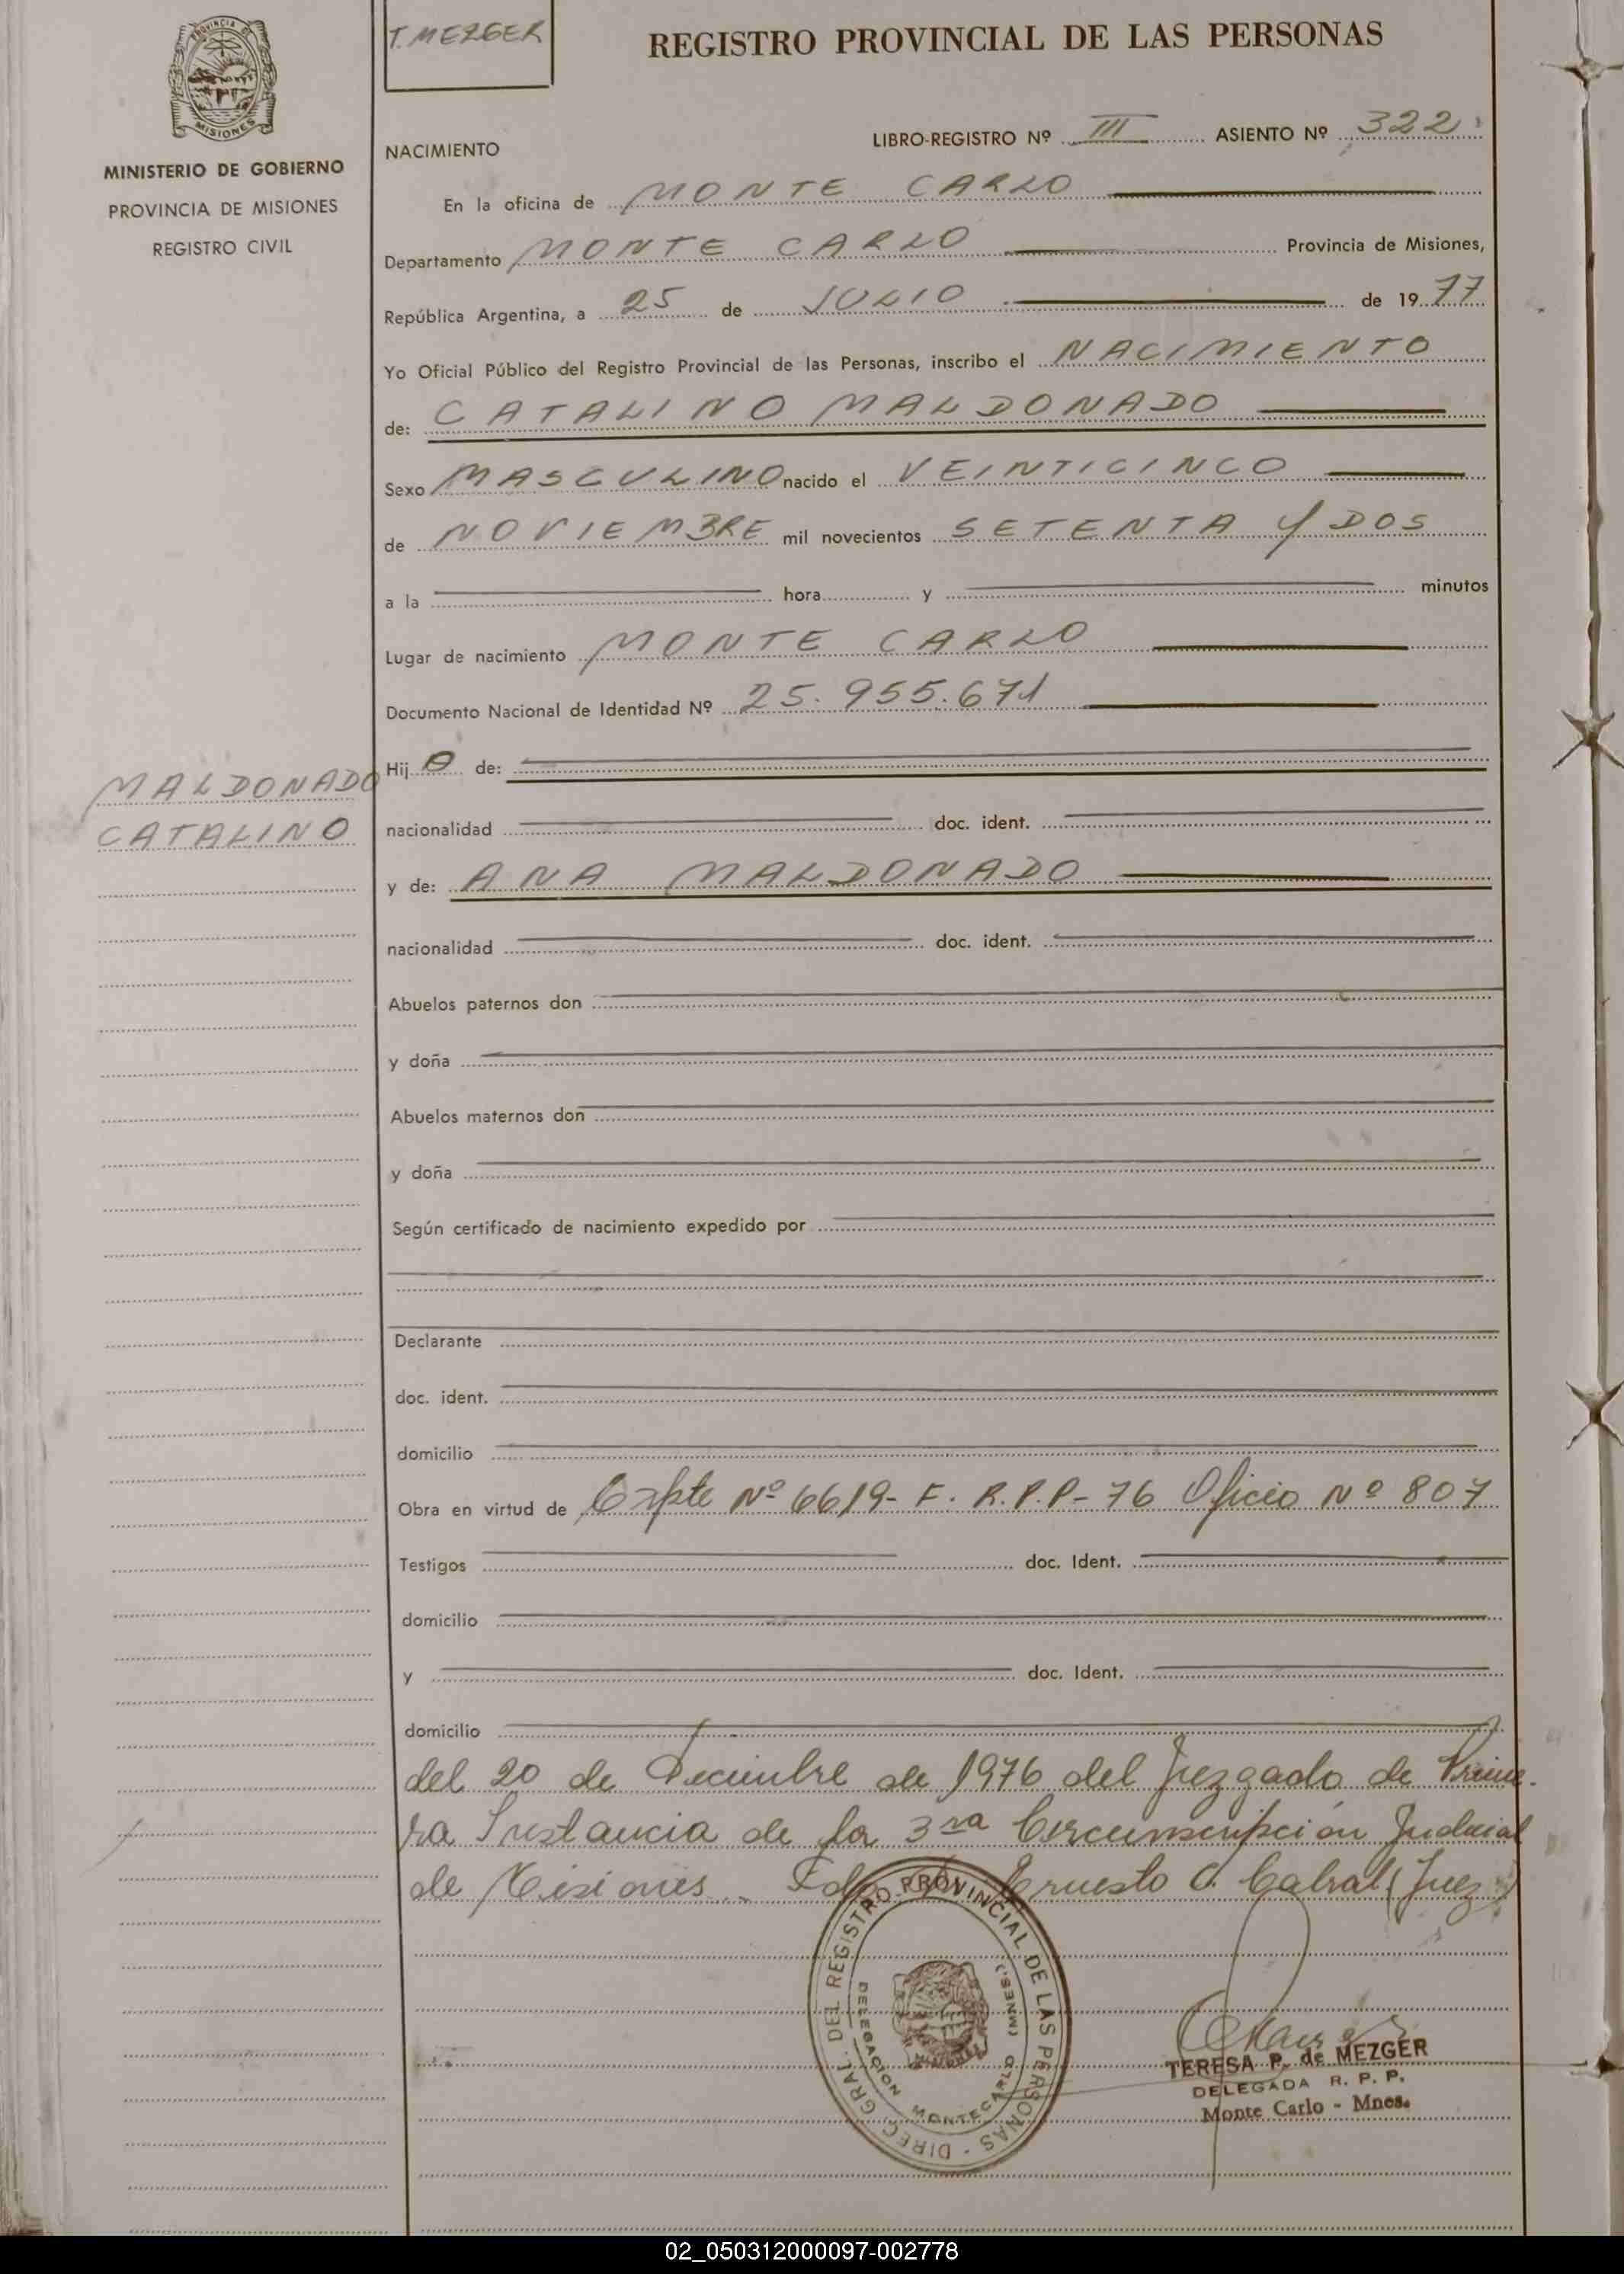 T. MEZGER
REGISTRO PROVINCIAL DE LAS PERSONAS
PROVINCIA DE
MISIONES
MINISTERIO DE GOBIERNO
PROVINCIA DE MISIONES
REGISTRO CIVIL
NACIMIENTO
LIBRO-REGISTRO Nº III ASIENTO Nº 322
En la oficina de MONTE CARLO
Departamento MONTE CARLO Provincia de Misiones,
República Argentina, a 25 de JULIO de 1977
Yo Oficial Público del Registro Provincial de las Personas, inscribo el NACIMIENTO
de: CATALINO MALDONADO
Sexo MASCULINO nacido el VEINTICINCO
de NOVIEMBRE mil novecientos SETENTA Y DOS
a la hora y minutos
Lugar de nacimiento MONTE CARLO
Documento Nacional de Identidad Nº 25.955.671
MALDONADO
CATALINO
Hij O de:
nacionalidad doc. ident.
y de: ANA MALDONADO
nacionalidad doc. ident.
Abuelos paternos don
y doña
Abuelos maternos don
y doña
Según certificado de nacimiento expedido por
Declarante
doc. ident.
domicilio
Obra en virtud de Expte Nº 6619- F. R.P.P- 76 Oficio Nº 807
Testigos doc. Ident.
domicilio
y doc. Ident.
domicilio
del 20 de Diciembre de 1976 del Juzgado de Prime-
ra Instancia de la 3ra Circunscripción Judicial
de Misiones. Fdo Ernesto C. Cabral (Juez)
DIREC. GRAL. DEL REGISTRO PROVINCIAL DE LAS PERSONAS
DELEGACION MONTECARLO (MNES.)
TERESA P. de MEZGER
DELEGADA R. P. P.
Monte Carlo - Mnes.
02_050312000097-002778